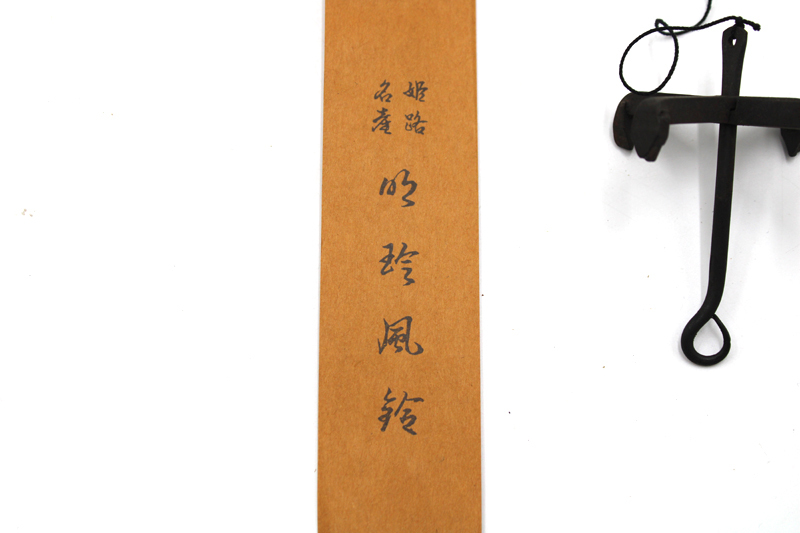 姫路
名産
明玲風鈴